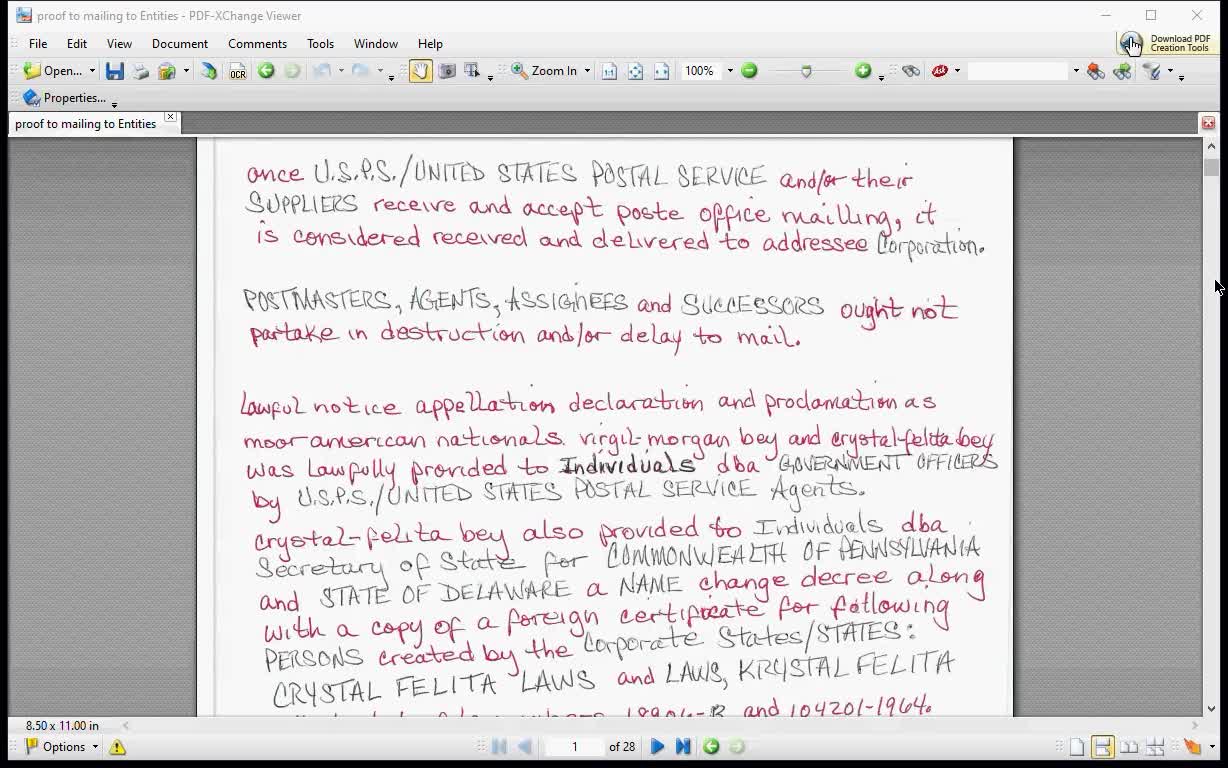 proof to mailing to Entities - PDF-XChange Viewer
File Edit View Document Comments Tools Window Help
Download PDF
Creation Tools
Open... OCR Zoom In 1:1 100%
Properties...
proof to mailing to Entities
once U.S.P.S./UNITED STATES POSTAL SERVICE and/or their
SUPPLIERS receive and accept poste office mailling, it
is considered received and delivered to addressee Corporation.
POSTMASTERS, AGENTS, ASSIGNEES and SUCCESSORS ought not
partake in destruction and/or delay to mail.
Lawful notice appellation declaration and proclamation as
moor american nationals. virgil-morgan bey and crystal-felita bey
was Lawfully provided to Individuals dba GOVERNMENT OFFICERS
by U.S.P.S./UNITED STATES POSTAL SERVICE Agents.
crystal-felita bey also provided to Individuals dba
Secretary of State for COMMONWEALTH OF PENNSYLVANIA
and STATE OF DELAWARE a NAME change decree along
with a copy of a foreign certificate for following
PERSONS created by the Corporate States/STATES:
CRYSTAL FELITA LAWS and LAWS, KRYSTAL FELITA
and 104201-1964.
8.50 x 11.00 in
Options 1 of 28